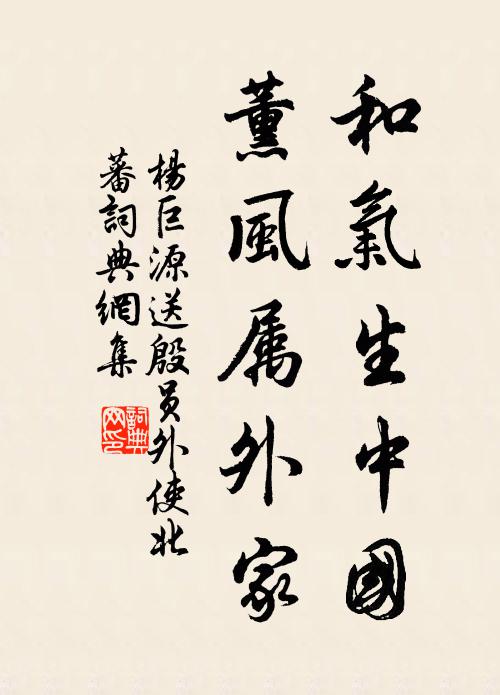 和氣生中國
薰風属外家
楊巨源送殷員外使北
蕃詞典網集
詞典网印